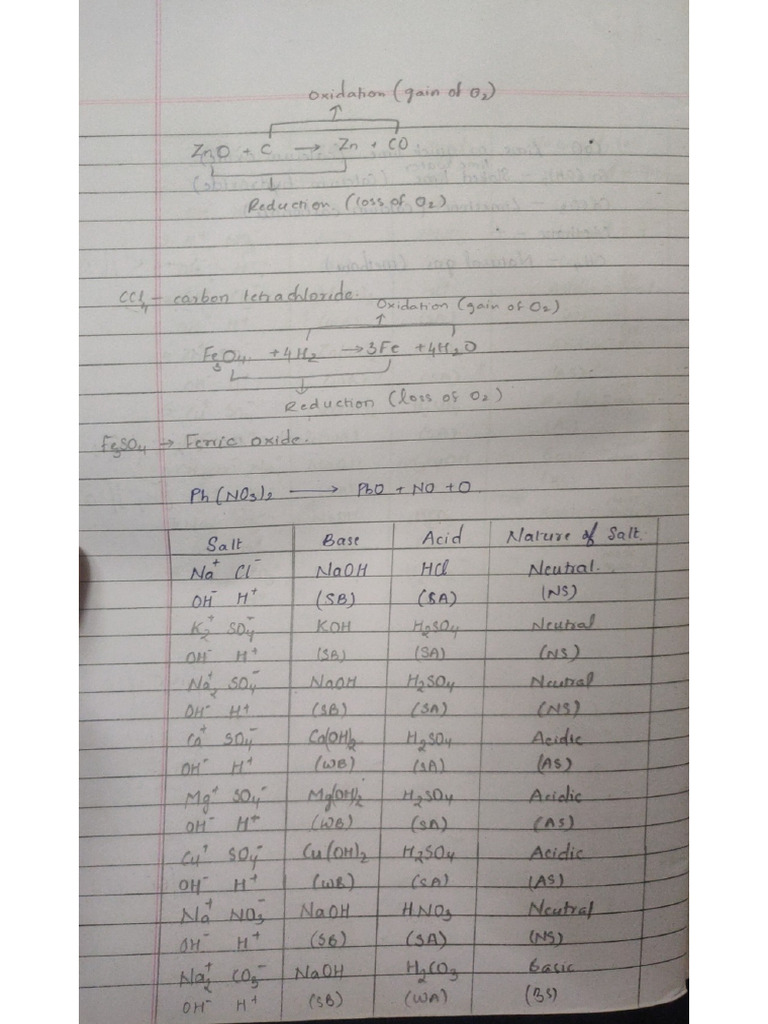 Oxidation (gain of O₂)
ZnO + C → Zn + CO
Reduction (loss of O₂)
CCl₄ - carbon tetrachloride.
Oxidation (gain of O₂)
Fe₃O₄ + 4H₂ → 3Fe + 4H₂O
Reduction (loss of O₂)
Fe₃SO₄ → Ferric oxide.
Ph(NO₃)₂ → PbO + NO + O
Salt Base Acid Nature of Salt.
Na⁺ Cl⁻ NaOH HCl Neutral.
OH⁻ H⁺ (SB) (SA) (NS)
K₂⁺ SO₄⁻ KOH H₂SO₄ Neutral
OH⁻ H⁺ (SB) (SA) (NS)
Na₂⁺ SO₄⁻ NaOH H₂SO₄ Neutral
OH⁻ H⁺ (SB) (SA) (NS)
Ca⁺ SO₄⁻ Ca(OH)₂ H₂SO₄ Acidic
OH⁻ H⁺ (WB) (SA) (AS)
Mg⁺ SO₄⁻ Mg(OH)₂ H₂SO₄ Acidic
OH⁻ H⁺ (WB) (SA) (AS)
Cu⁺ SO₄⁻ Cu(OH)₂ H₂SO₄ Acidic
OH⁻ H⁺ (WB) (SA) (AS)
Na⁺ NO₃⁻ NaOH HNO₃ Neutral
OH⁻ H⁺ (SB) (SA) (NS)
Na₂⁺ CO₃⁻ NaOH H₂CO₃ Basic
OH⁻ H⁺ (SB) (WA) (BS)